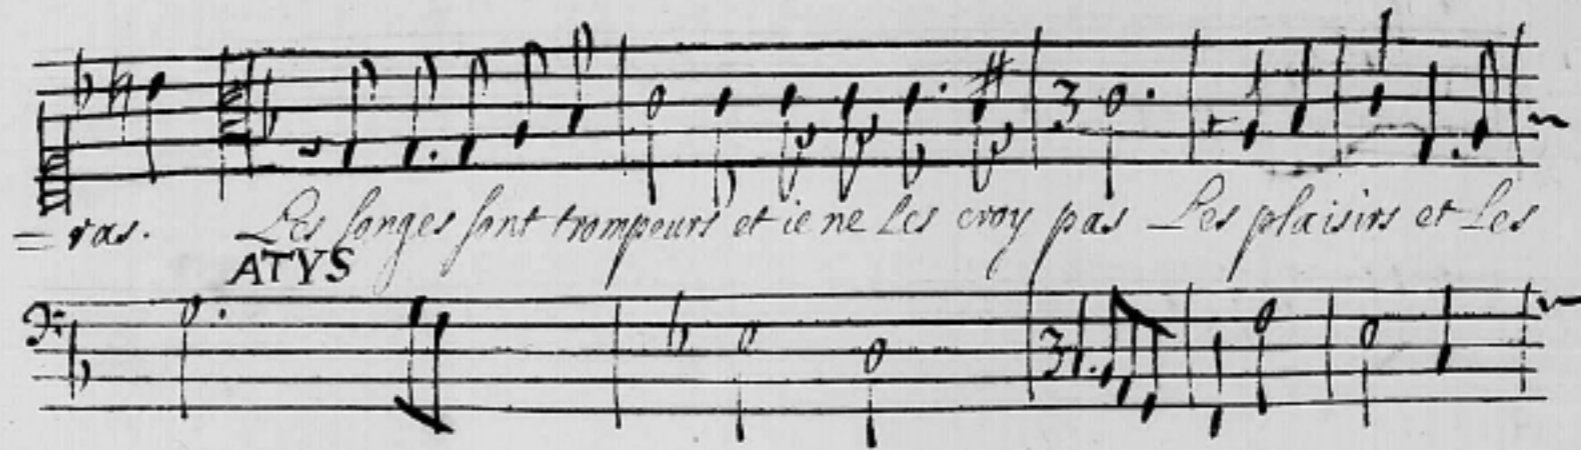 = ras. Les songes sont trompeurs et ie ne les croy pas Les plaisirs et Les
ATYS